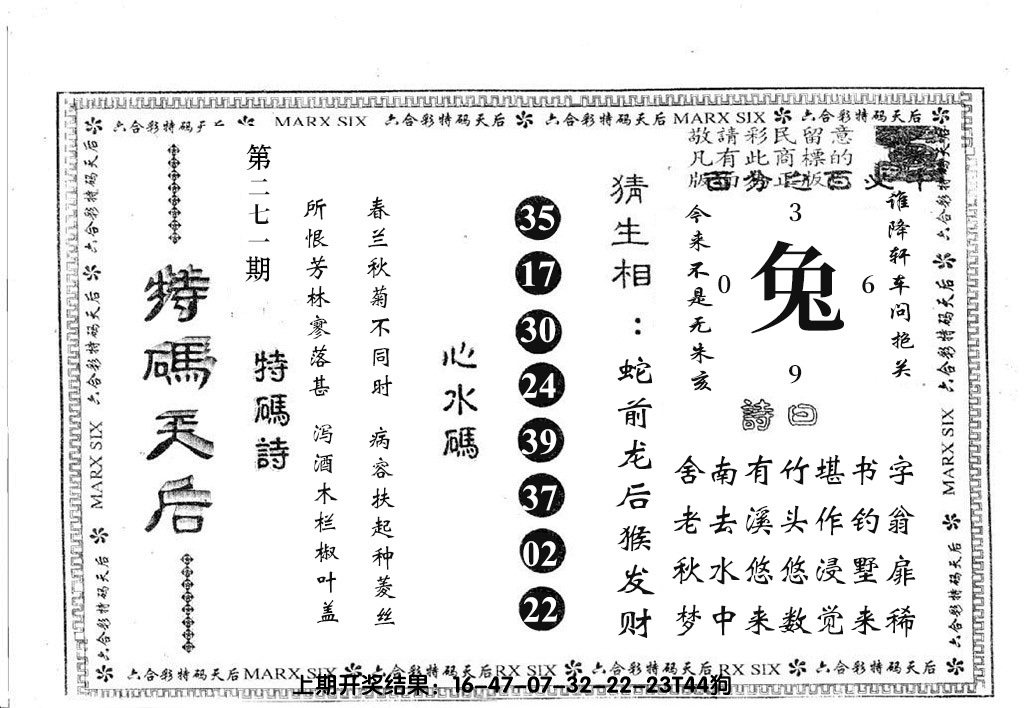 六合彩特码天后 MARX SIX 六合彩特码天后 六合彩特码天后 MARX SIX 六合彩特码天后
敬請彩民留意
凡有此商標的
版面為正版
特碼天后
第二七一期
特碼詩
所恨芳林寥落甚 泻酒木栏椒叶盖
春兰秋菊不同时 病容扶起种菱丝
心水碼
35
17
30
24
39
37
02
22
猜生相：蛇前龙后猴发财
今来不是无朱亥
3
0 兔 6
9
谁降轩车问抱关
詩曰
舍南有竹堪书字
老去溪头作钓翁
秋水悠悠浸墅扉
梦中来数觉来稀
六合彩特码天后 MARX SIX 六合彩特码天后
六合彩特码天后 MARX SIX 六合彩特码天后
六合彩特码天后MARX SIX 六合彩特码天后RX SIX 六合彩特码天后RX SIX 六合彩特码天后
上期开奖结果：16-47-07-32-22-23T44狗